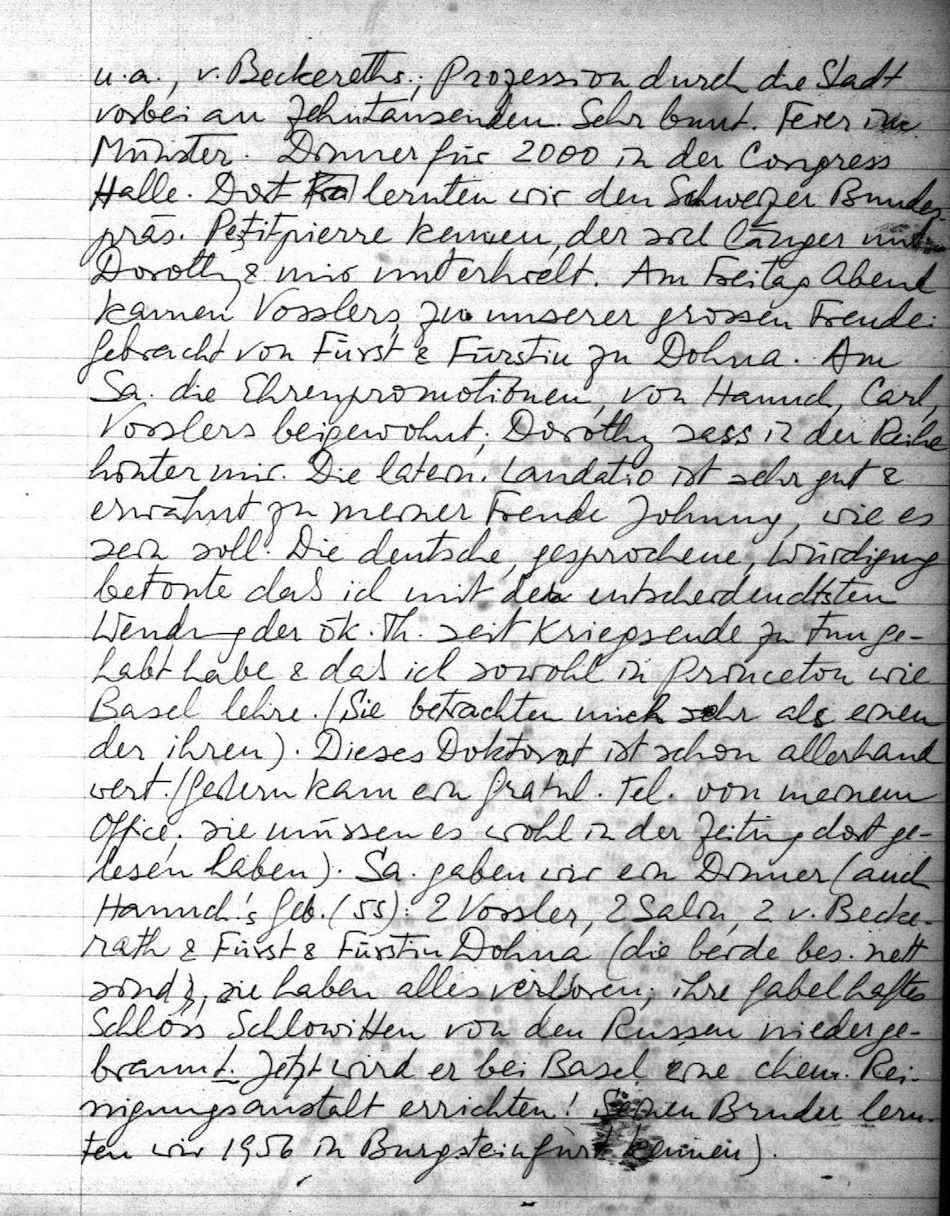 u. a., v. Beckereths; Prozession durch die Stadt
vorbei an Zehntausenden. Sehr bunt. Feier im
Münster. Dinner für 2000 in der Congress
Halle. Dort lernten wir den Schweizer Bundes
präs. Petitpierre kennen, der sich länger mit
Dorothy & mir unterhielt. Am Freitag Abend
kamen Vosslers, zu unserer grossen Freude:
gebracht von Fürst & Fürstin zu Dohna. Am
Sa. die Ehrenpromotionen, von Hannch, Carl,
Vosslers beigewohnt; Dorothy sass in der Reihe
hinter mir. Die latein. Laudatio ist sehr gut &
erwähnt zu meiner Freude Johnny, wie es
sein soll. Die deutsche, gesprochene, Würdigung
betonte dass ich mit den entscheidendtsten
Wendung der ök. Th. seit Kriegsende zu tun ge-
habt habe & dass ich sowohl in Princeton wie
Basel lehre. (Sie betrachten mich sehr als einen
der ihren). Dieses Doktorat ist schon allerhand
wert. (Gestern kam ein Gratul. Tel. von meinem
Office; sie müssen es wohl in der Zeitung dort ge-
lesen haben). Sa. gaben wir ein Dinner (auch
Hannch's Geb. (55): 2 Vossler, 2 Salin, 2 v. Becke-
rath & Fürst & Fürstin Dohna (die beide bes. nett
sind), sie haben alles verloren; ihre fabelhaftes
Schloss Schlowitten von den Russen niederge-
brannt. Jetzt wird er bei Basel eine chem. Rei-
nigungsanstalt errichten! Seinen Bruder lern-
ten wir 1956 in Burgsteinfurt kennen).